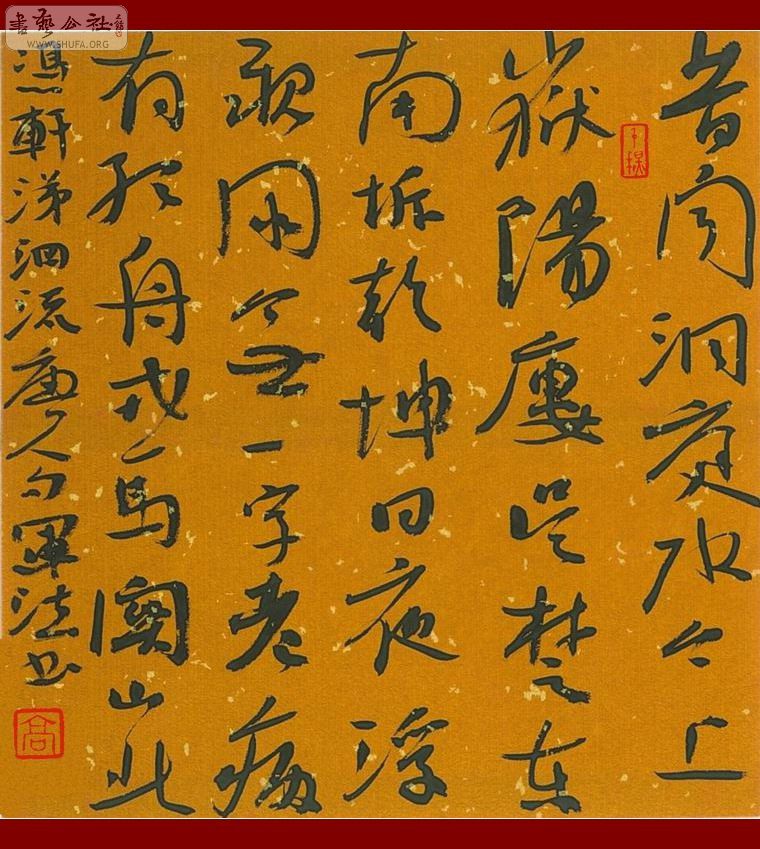 書藝公社
WWW.SHUFA.ORG
昔聞洞庭水今上
嶽陽樓吳楚東
南坼乾坤日夜浮
親朋無一字老病
有孤舟戎馬關山北
憑軒涕泗流唐人句軍法書
高